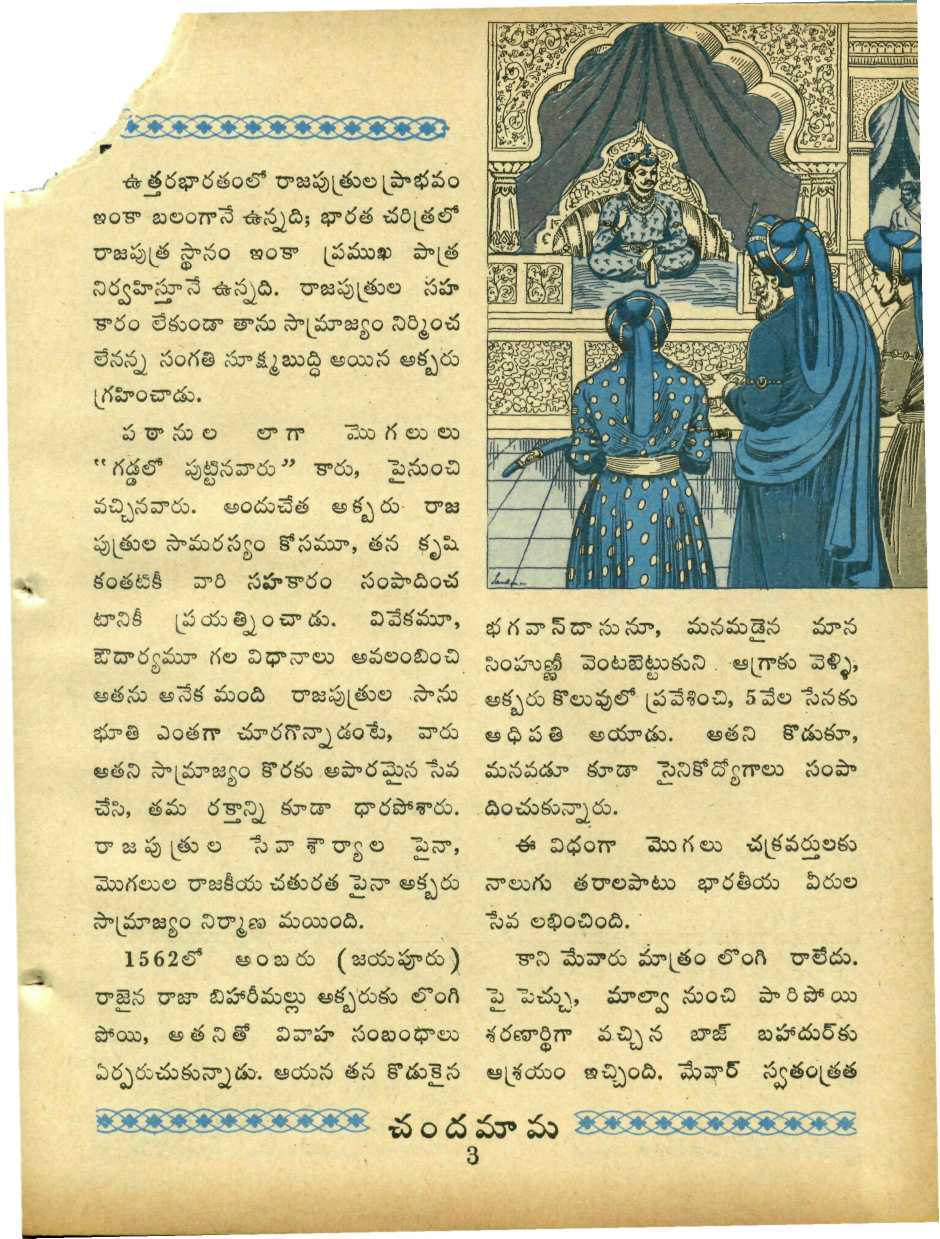 ఉత్తరభారతంలో రాజపుత్రుల ప్రాభవం
ఇంకా బలంగానే ఉన్నది; భారత చరిత్రలో
రాజపుత్ర స్థానం ఇంకా ప్రముఖ పాత్ర
నిర్వహిస్తూనే ఉన్నది. రాజపుత్రుల సహ
కారం లేకుండా తాను సామ్రాజ్యం నిర్మించ
లేనన్న సంగతి సూక్ష్మబుద్ధి అయిన అక్బరు
గ్రహించాడు.
పఠానుల లాగా మొగలులు
“గడ్డలో పుట్టినవారు” కారు, పైనుంచి
వచ్చినవారు. అందుచేత అక్బరు రాజ
పుత్రుల సామరస్యం కోసమూ, తన కృషి
కంతటికీ వారి సహకారం సంపాదించ
టానికీ ప్రయత్నించాడు. వివేకమూ,
ఔదార్యమూ గల విధానాలు అవలంబించి
అతను అనేక మంది రాజపుత్రుల సాను
భూతి ఎంతగా చూరగొన్నాడంటే, వారు
అతని సామ్రాజ్యం కొరకు అపారమైన సేవ
చేసి, తమ రక్తాన్ని కూడా ధారపోశారు.
రాజపుత్రుల సేవాశౌర్యాల పైనా,
మొగలుల రాజకీయ చతురత పైనా అక్బరు
సామ్రాజ్యం నిర్మాణ మయింది.
1562లో అంబరు (జయపూరు)
రాజైన రాజా బిహారీమల్లు అక్బరుకు లొంగి
పోయి, అతనితో వివాహ సంబంధాలు
ఏర్పరుచుకున్నాడు. ఆయన తన కొడుకైన
భగవాన్‌దాసునూ, మనమడైన మాన
సింహుణ్ణీ వెంటబెట్టుకుని ఆగ్రాకు వెళ్ళి,
అక్బరు కొలువులో ప్రవేశించి, 5 వేల సేనకు
అధిపతి అయాడు. అతని కొడుకూ,
మనవడూ కూడా సైనికోద్యోగాలు సంపా
దించుకున్నారు.
ఈ విధంగా మొగలు చక్రవర్తులకు
నాలుగు తరాలపాటు భారతీయ వీరుల
సేవ లభించింది.
కాని మేవారు మాత్రం లొంగి రాలేదు.
పై పెచ్చు, మాల్వా నుంచి పారిపోయి
శరణార్థిగా వచ్చిన బాజ్ బహాదుర్‌కు
ఆశ్రయం ఇచ్చింది. మేవార్ స్వతంత్రత
చందమామ
3